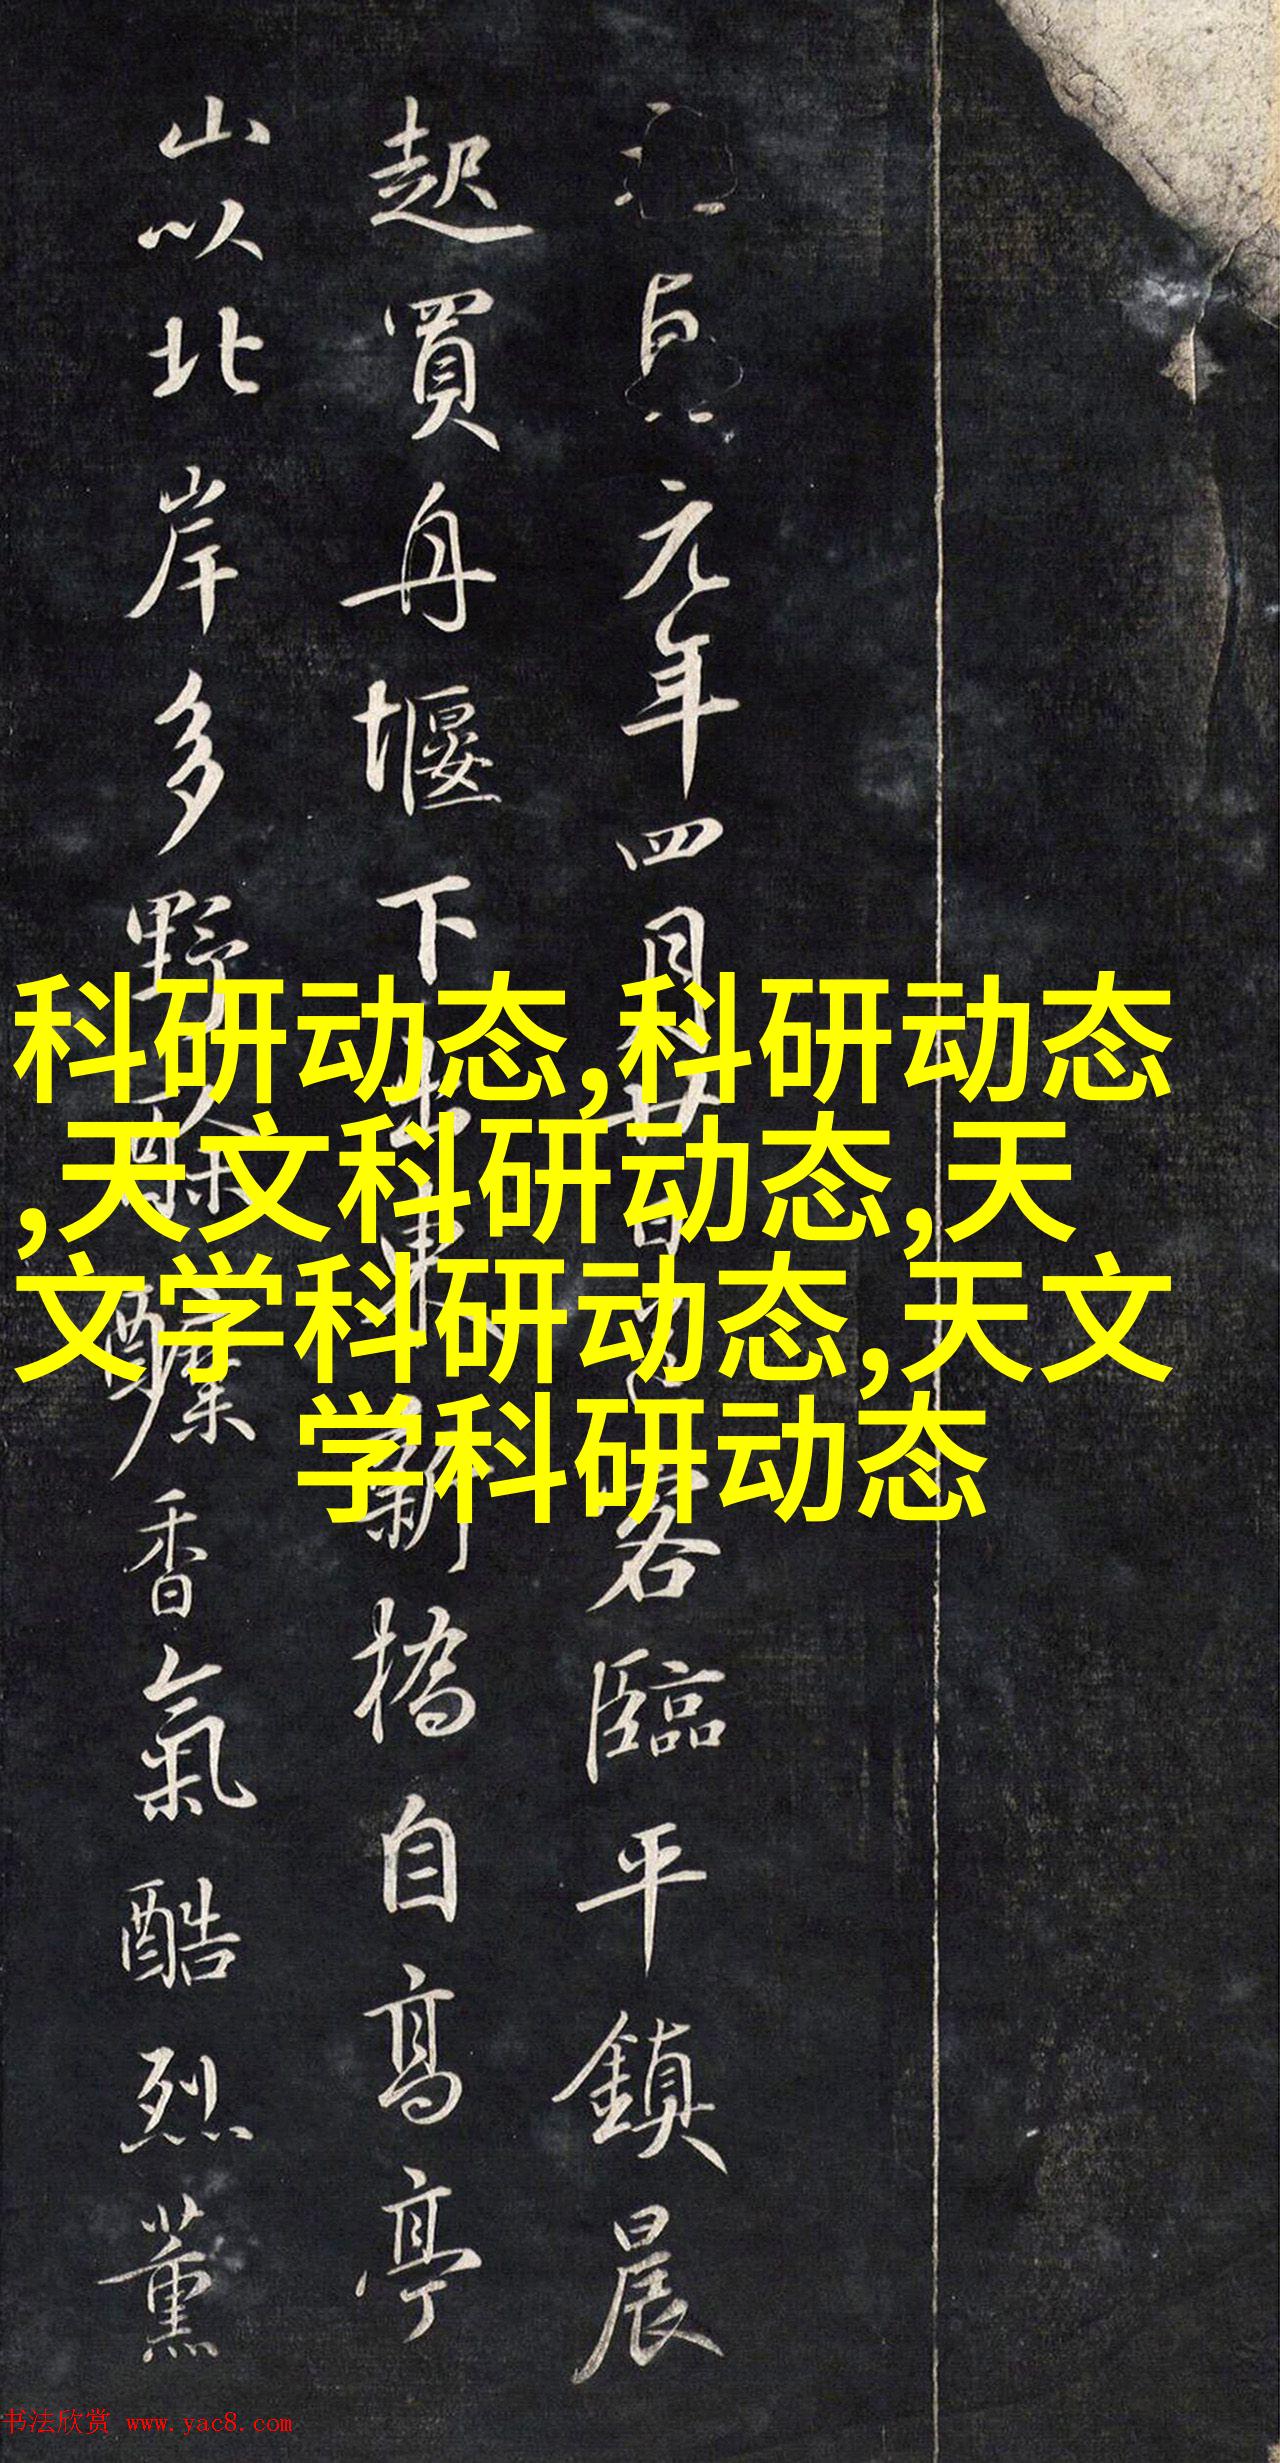 元年四月廿日 客臨平鎮晨
起買舟堰下 東新橋自高亭
山以北岸多野 香氣酷烈薰
科研动态,科研动态
,天文科研动态,天
文学科研动态,天文
学科研动态
书法欣赏 www.yac8.com